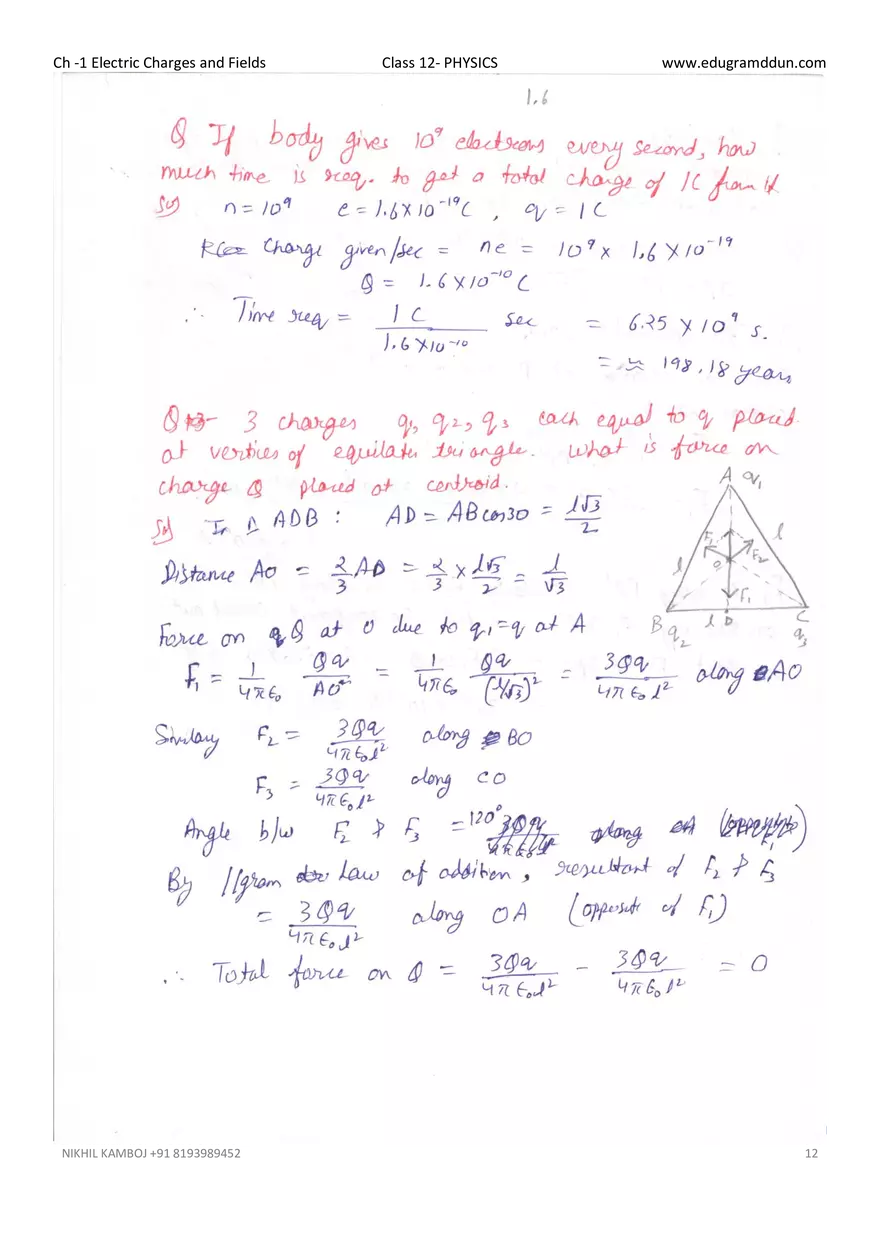 Ch -1 Electric Charges and Fields Class 12- PHYSICS www.edugramddun.com
1.6
Q If body gives 10⁹ electrons every second, how
much time is req. to get a total charge of 1C from it
Sol n = 10⁹ e = 1.6 × 10⁻¹⁹C , q = 1 C
Charge given/sec = ne = 10⁹ × 1.6 × 10⁻¹⁹
Q = 1.6 × 10⁻¹⁰ C
∴ Time req = 1 C / 1.6 × 10⁻¹⁰ sec = 6.25 × 10⁹ s.
= ≈ 198.18 years
Q 3 charges q₁, q₂, q₃ each equal to q placed
at verties of equilater triangle. What is force on
charge Q placed at centroid.
Sol In △ ADB : AD = AB cos30 = l√3/2
Distance AO = 2/3 AD = 2/3 × l√3/2 = l/√3
A q₁ l l F₁ F₂ O F₁ B q₂ l D C q₃
Force on Q at O due to q₁=q at A
F₁ = 1/4πε₀ Qq/AO² = 1/4πε₀ Qq/(l/√3)² = 3Qq/4πε₀l² along AO
Similary F₂ = 3Qq/4πε₀l² along BO
F₃ = 3Qq/4πε₀l² along CO
Angle b/w F₂ & F₃ = 120°
By //gram Law of addition, resultant of F₂ & F₃
= 3Qq/4πε₀l² along OA (opposite of F₁)
∴ Total force on Q = 3Qq/4πε₀l² − 3Qq/4πε₀l² = 0
NIKHIL KAMBOJ +91 8193989452 12